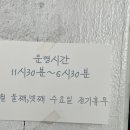 운영시간
11시30분~6시30분
월 둘째,넷째 수요일 정기휴무